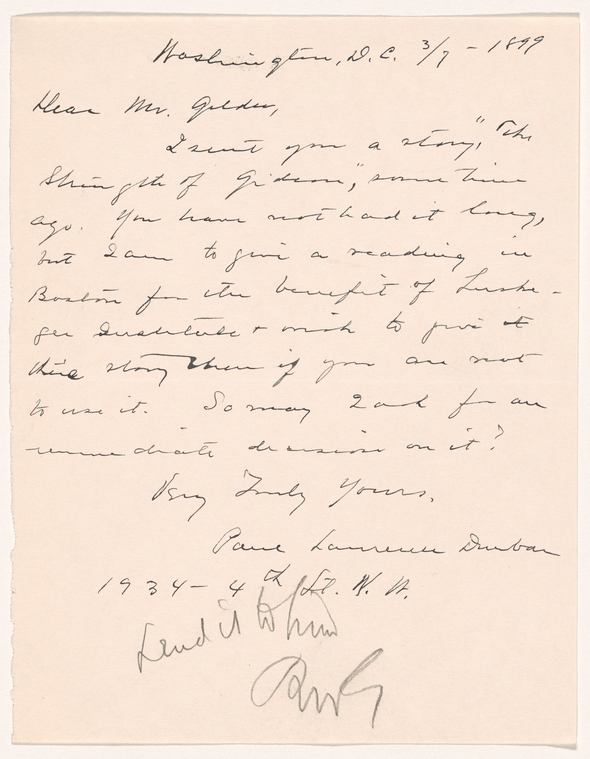 Washington, D.C. 3/7 - 1899
Dear Mr. Gilder,
I sent you a story, "The
Strength of Gideon," some time
ago. You have not had it long,
but I am to give a reading in
Boston for the benefit of Tuske-
gee Institute + wish to give it
this story then if you are not
to use it. So may I ask for an
immediate decision on it?
Very Truly Yours,
Paul Laurence Dunbar
1934 - 4th St. N. W.
Send it to him